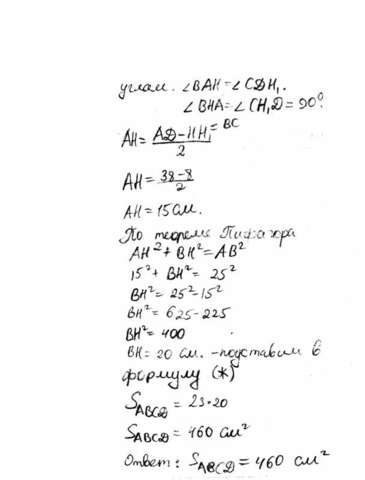 углам. ∠BAH=∠CDH₁.
∠BHA=∠CH₁D=90°.
AH=(AD-HH₁=BC)/2
AH=(38-8)/2
AH=15см.
По теореме Пифагора
AH²+BH²=AB²
15²+BH²=25²
BH²=25²-15²
BH²=625-225
BH²=400
BH=20 см. -подставим в
формулу (*)
S_ABCD=23·20
S_ABCD=460 см²
Ответ: S_ABCD=460 см²